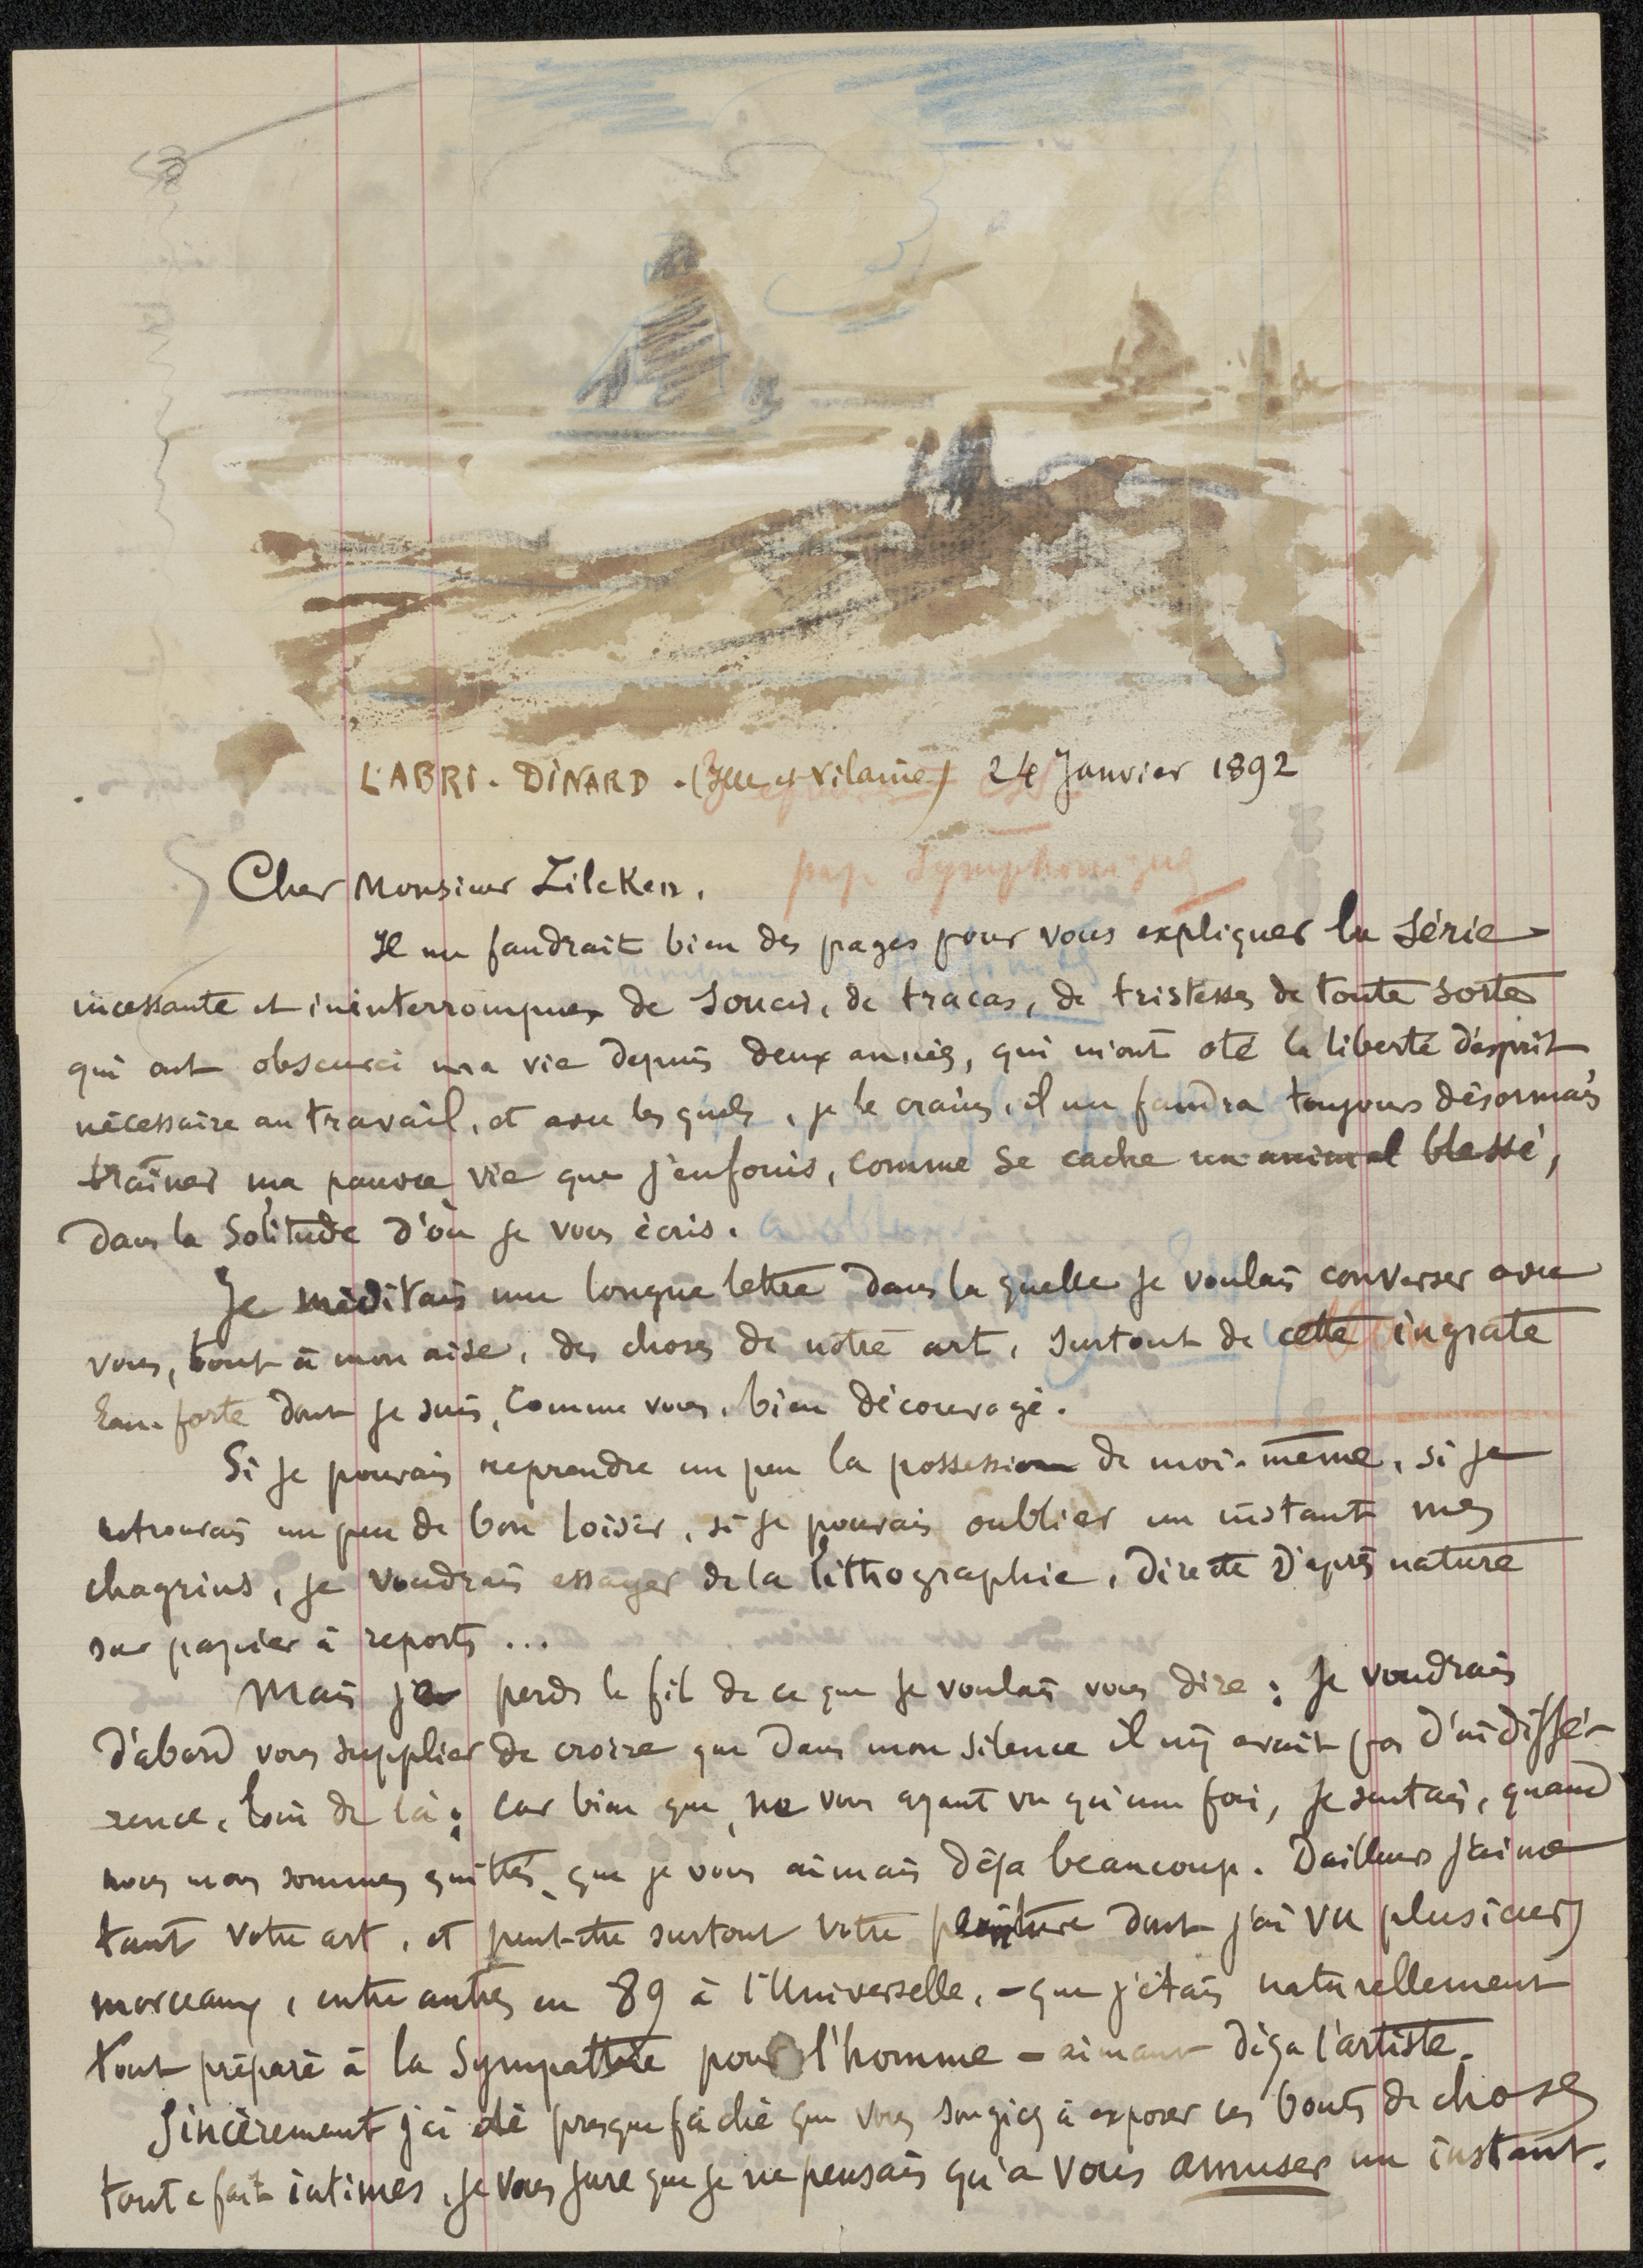 L'ABRI. DINARD. (Ille et Vilaine) 24 Janvier 1892
pap Symphonique
Cher Monsieur Zilcken.
Il me faudrait bien des pages pour vous expliquer la série
incessante et ininterrompue de soucis, de tracas, de tristesses de toute sorte
qui ont obscurci ma vie depuis deux années, qui m'ont oté la liberté d'esprit
nécessaire au travail, et avec les quels, je le crains, il me faudra toujours désormais
traîner ma pauvre vie que j'enfouis, comme se cache un animal blessé,
dans la solitude d'où je vous écris.
Je méditais une longue lettre dans la quelle je voulais converser avec
vous, tout à mon aise, des choses de notre art, surtout de cette ingrate
Eau-forte dont je suis, comme vous, bien découragé.
Si je pouvais reprendre un peu la possession de moi-même, si je
retrouvais un peu de bon loisir, si je pouvais oublier un instant mes
chagrins, je voudrais essayer de la lithographie, directe d'après nature
sur papier à reports ...
Mais je perds le fil de ce que je voulais vous dire : je voudrais
d'abord vous supplier de croire que dans mon silence il n'y avait pas d'indiffé-
rence, loin de là ; car bien que, ne vous ayant vu qu'une fois, je sentais, quand
nous nous sommes quittés, que je vous aimais déja beaucoup. D'ailleurs j'aime
tant votre art, et peut-être surtout votre peinture dont j'ai vu plusieurs
morceaux, entre autres en 89 à l'Universelle, - que j'étais naturellement
tout préparé à la sympathie pour l'homme - aimant déja l'artiste.
Sincèrement j'ai été presque fâché que vous songiez à exposer ces bouts de choses
tout a fait intimes, je vous jure que je ne pensais qu'a vous amuser un instant.